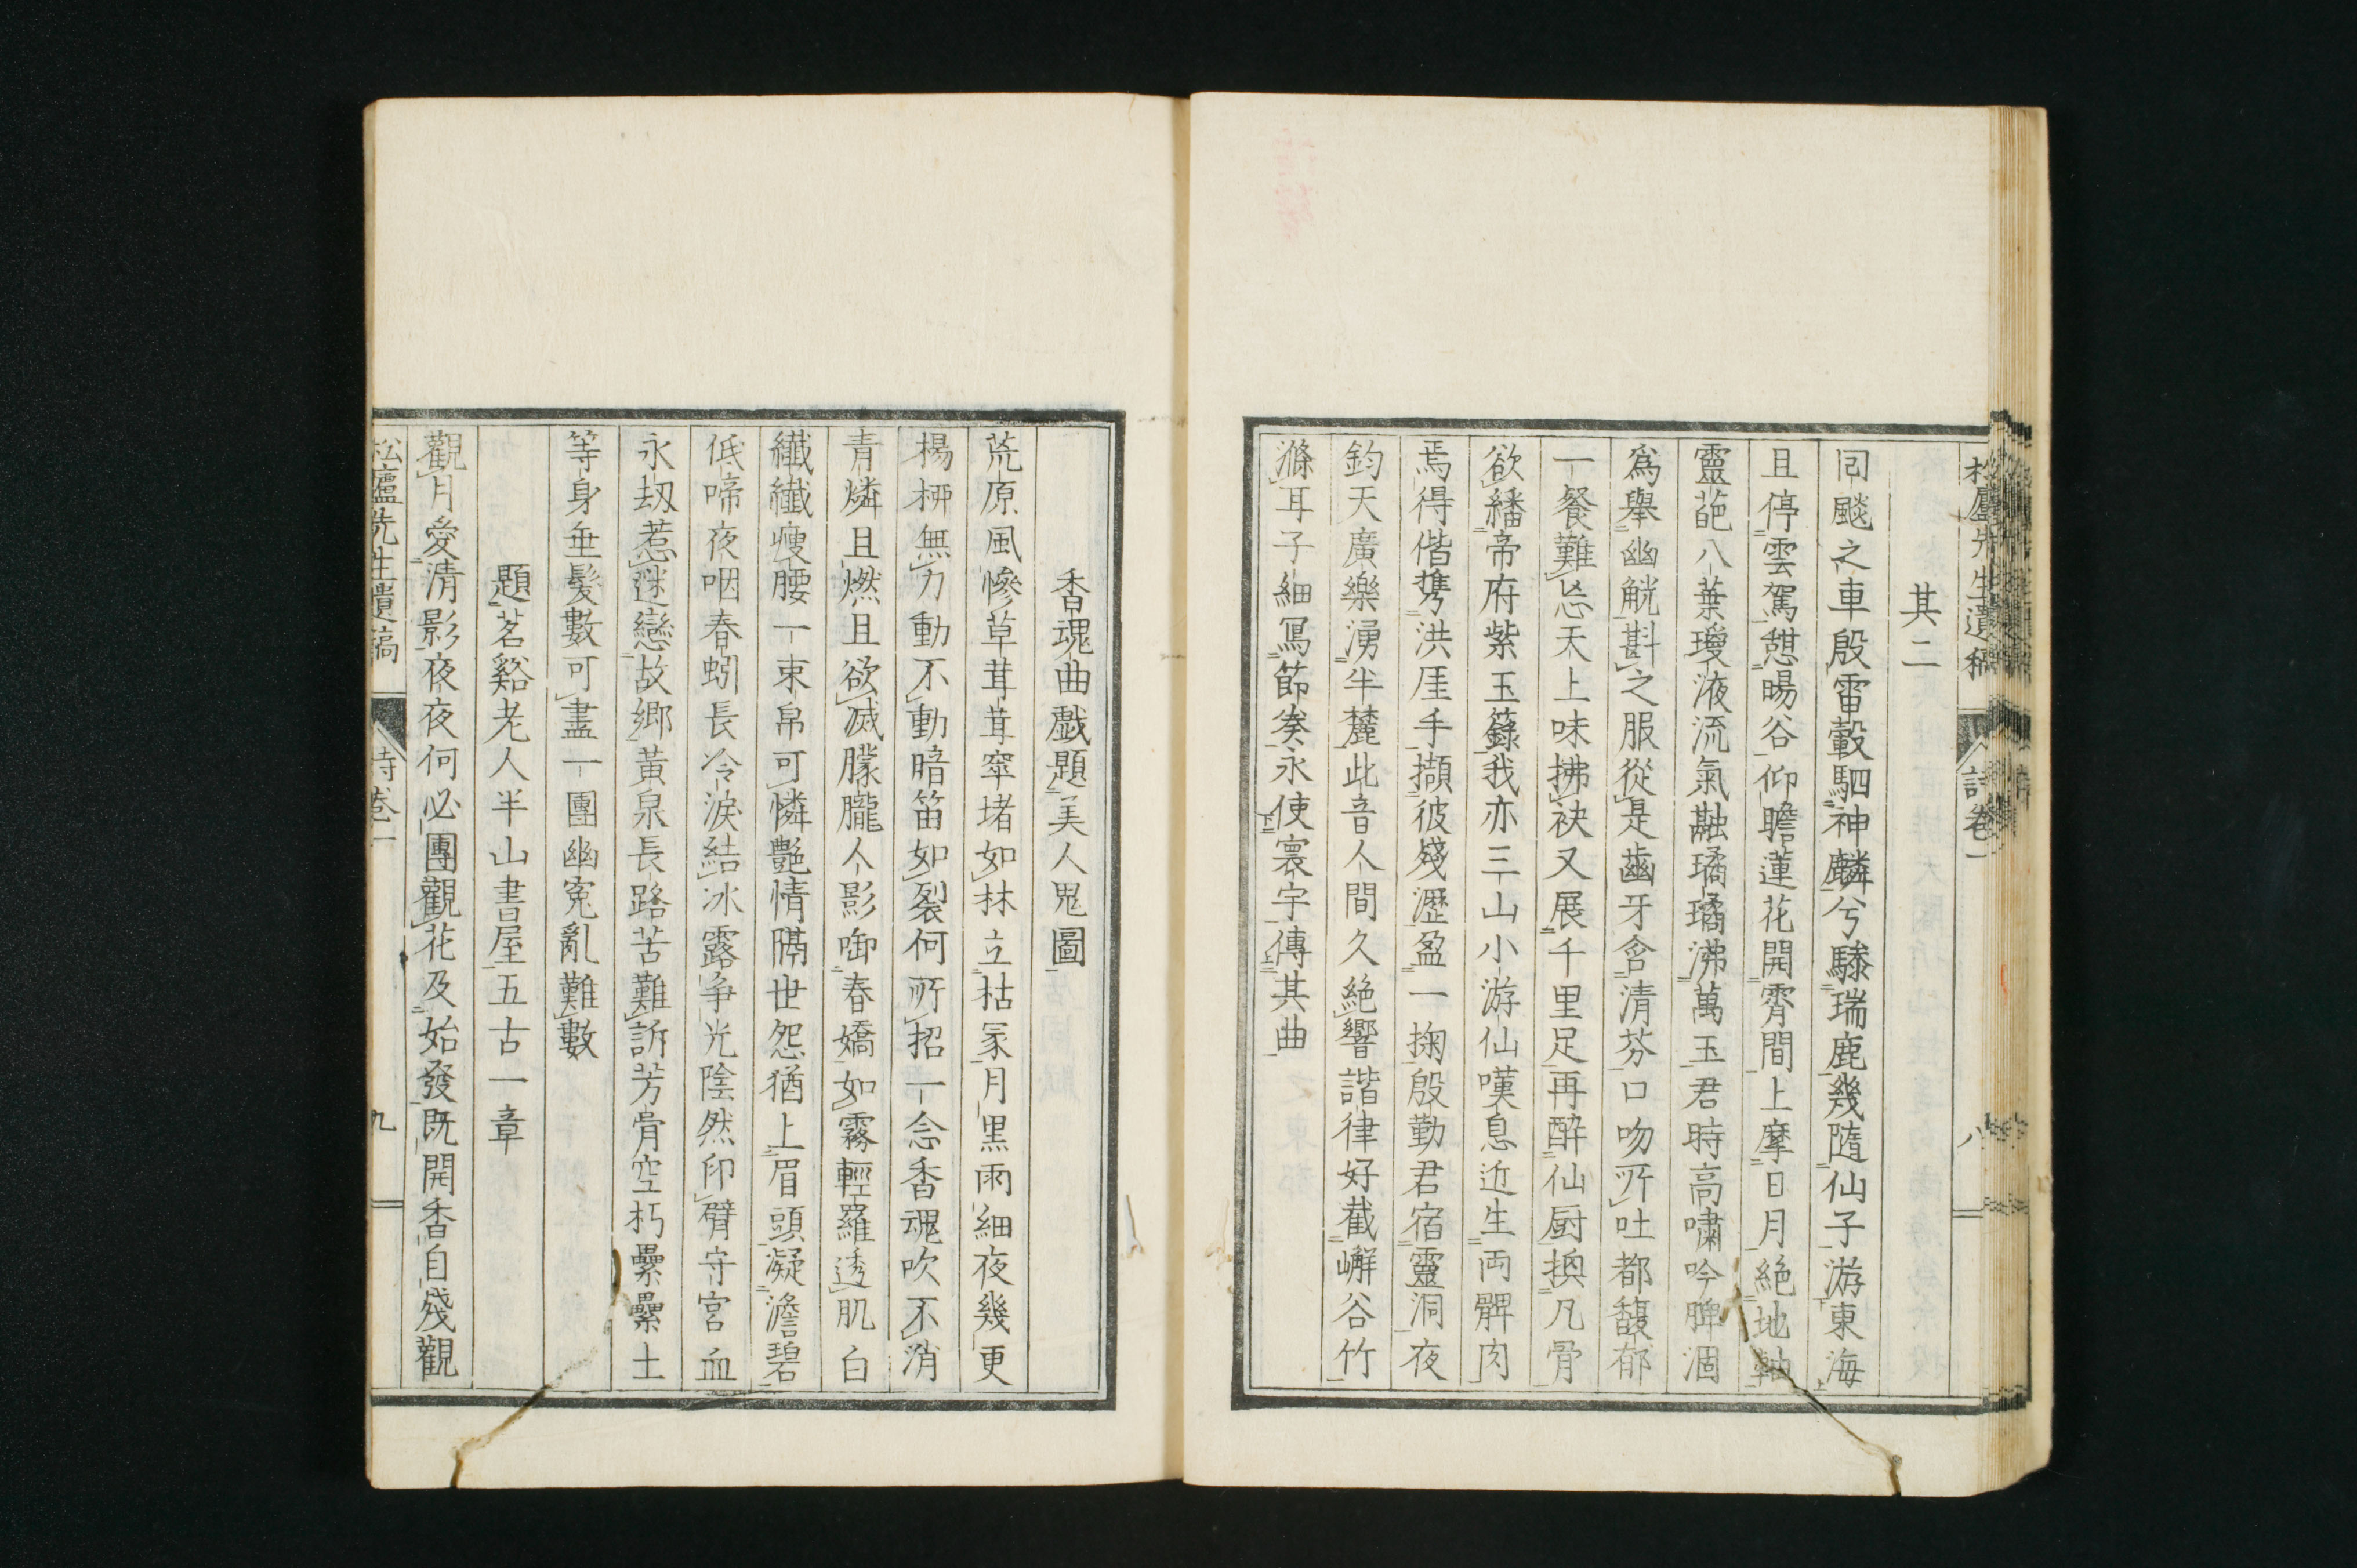 松廬先生遺稿 詩卷一 八
其二
囘飈之車殷雷轂駟神麟兮驂瑞鹿幾隨仙子游東海
且停雲駕憇暘谷仰瞻蓮花開霄間上摩日月絶地軸
靈葩八葉璦液流氣融璚璚沸萬玉君時高嘯吟脾涸
爲擧幽觥斟之服從是齒牙含清芬口吻所吐都馥郁
一餐難忘天上味拂袂又展千里足再醉仙厨換凡骨
欲繙帝府紫玉籙我亦三山小游仙嘆息近生両髀肉
焉得偕携洪厓手擷彼殘瀝盈一掬殷勤君宿靈洞夜
鈞天廣樂湧半麓此音人間久絶響諧律好截嶰谷竹
滌耳子細冩節奏永使寰宇傳其曲
香魂曲戯題美人鬼圖
荒原風慘草茸茸窣堵如林立枯冢月黒雨細夜幾更
楊柳無力動不動暗笛如裂何所招一念香魂吹不消
青燐且燃且欲滅朦朧人影啣春嬌如霧輕羅透肌白
纖纖瘦腰一束帛可憐艶情隔世怨猶上眉頭凝澹碧
低啼夜咽春蚓長冷淚結冰露争光陰然印臂守宮血
永劫惹迷戀故郷黃泉長路苦難訴芳骨空朽纍纍土
等身垂髮數可盡一團幽寃亂難數
題茗谿老人半山書屋五古一章
觀月愛清影夜夜何必團觀花及始發既開香自殘觀
松廬先生遺稿 詩卷一 九